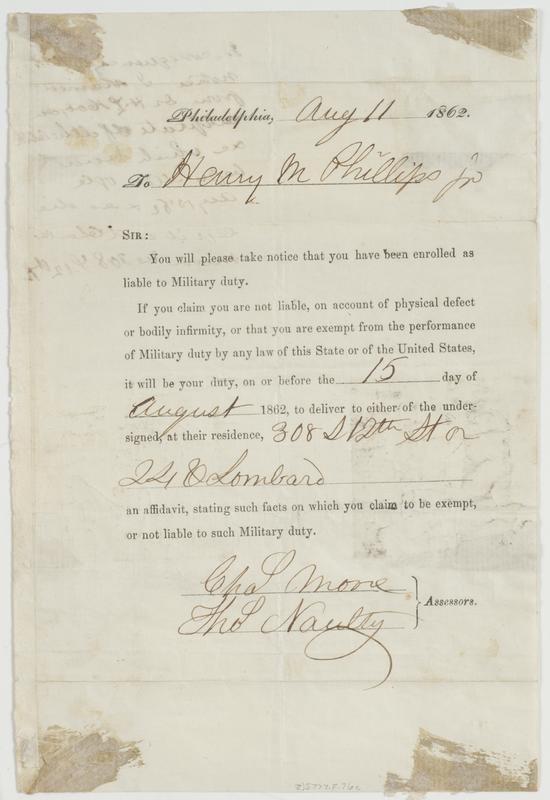 Philadelphia, Aug 11 1862.
To Henry M Phillips Jr
SIR:
You will please take notice that you have been enrolled as
liable to Military duty.
If you claim you are not liable, on account of physical defect
or bodily infirmity, or that you are exempt from the performance
of Military duty by any law of this State or of the United States,
it will be your duty, on or before the 15 day of
August 1862, to deliver to either of the under-
signed, at their residence, 308 S 12th St or
Lombard
an affidavit, stating such facts on which you claim to be exempt,
or not liable to such Military duty.
Chas Moore
Thos Naulty
Assessors.